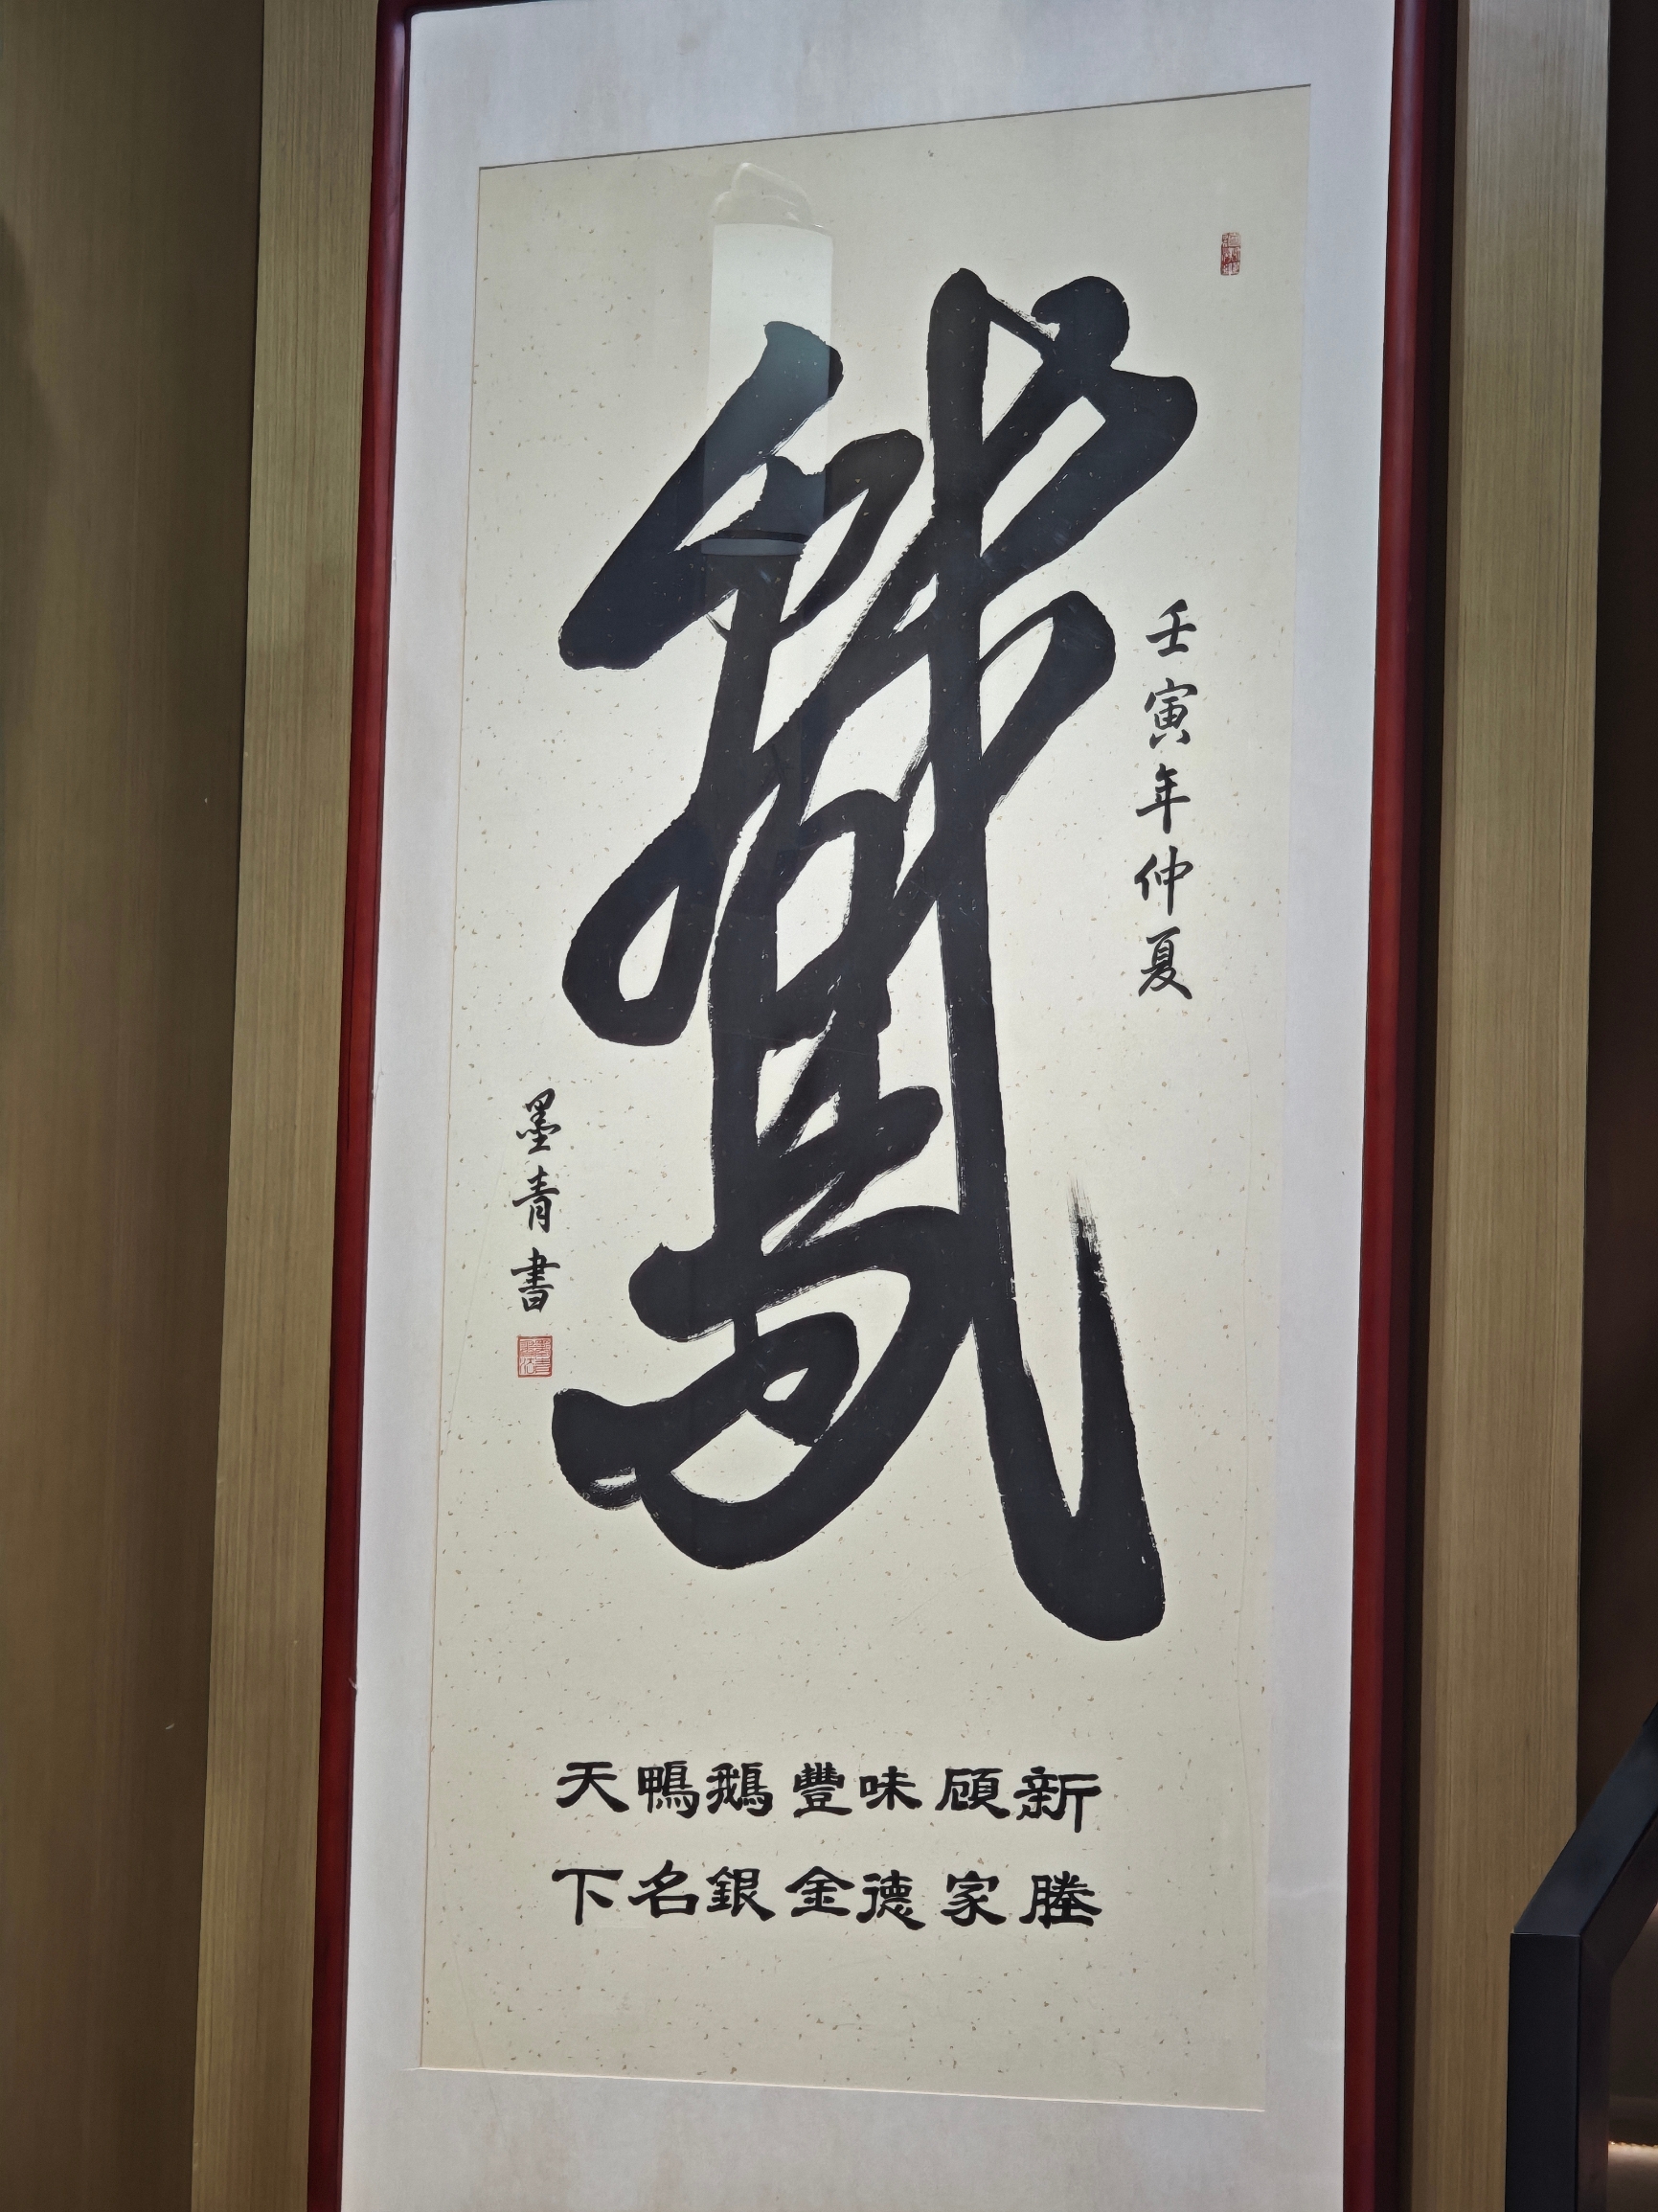 鵞
壬寅年仲夏
墨青書
新塍
顧家
味德
豐金
鵝銀
鴨名
天下